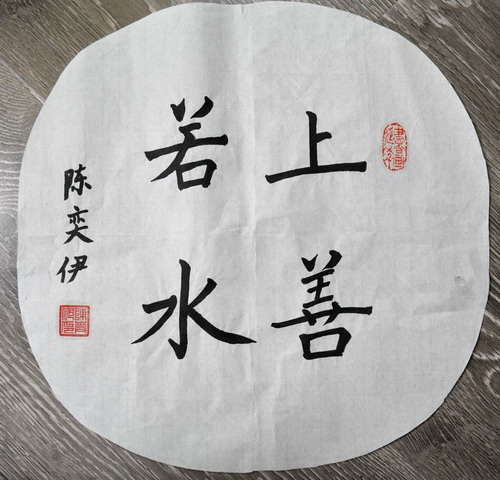 上善
若水
陈奕伊